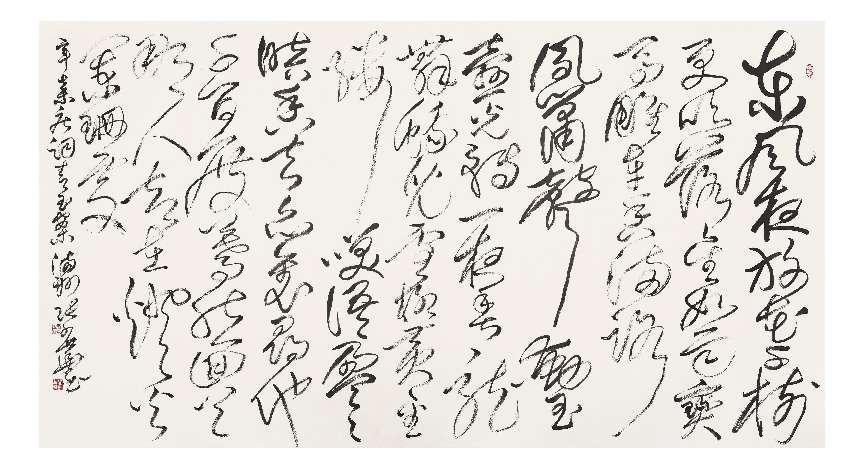 东风夜放花千树
更吹落星如雨寳
马雕车香满路
鳳箫聲動玉
壶光转一夜鱼龙
舞蛾儿雪柳黄金
缕笑语盈盈
暗香去众里寻他
千百度蓦然回首
那人却在灯火
阑珊处
辛棄疾词青玉案 书